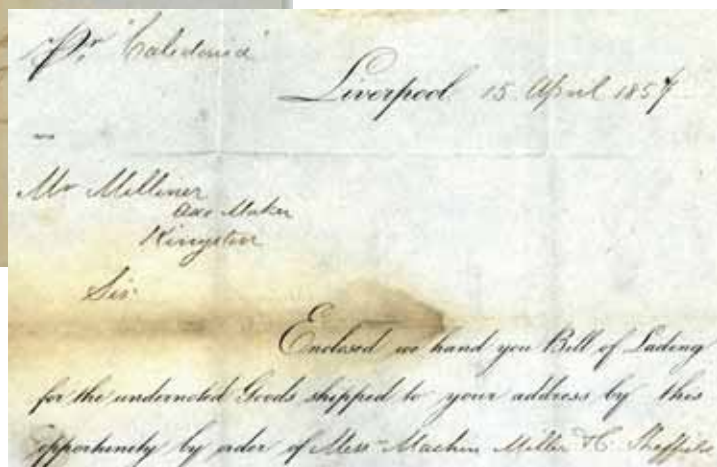 Pr "Caledonia"
Liverpool 15 April 1857
Mr Milliner
Axe Maker
Kingston
Sir
Enclosed we hand you Bill of Lading
for the undernoted Goods shipped to your address by this
opportunity by order of Mess Machin Miller & C. Sheffield